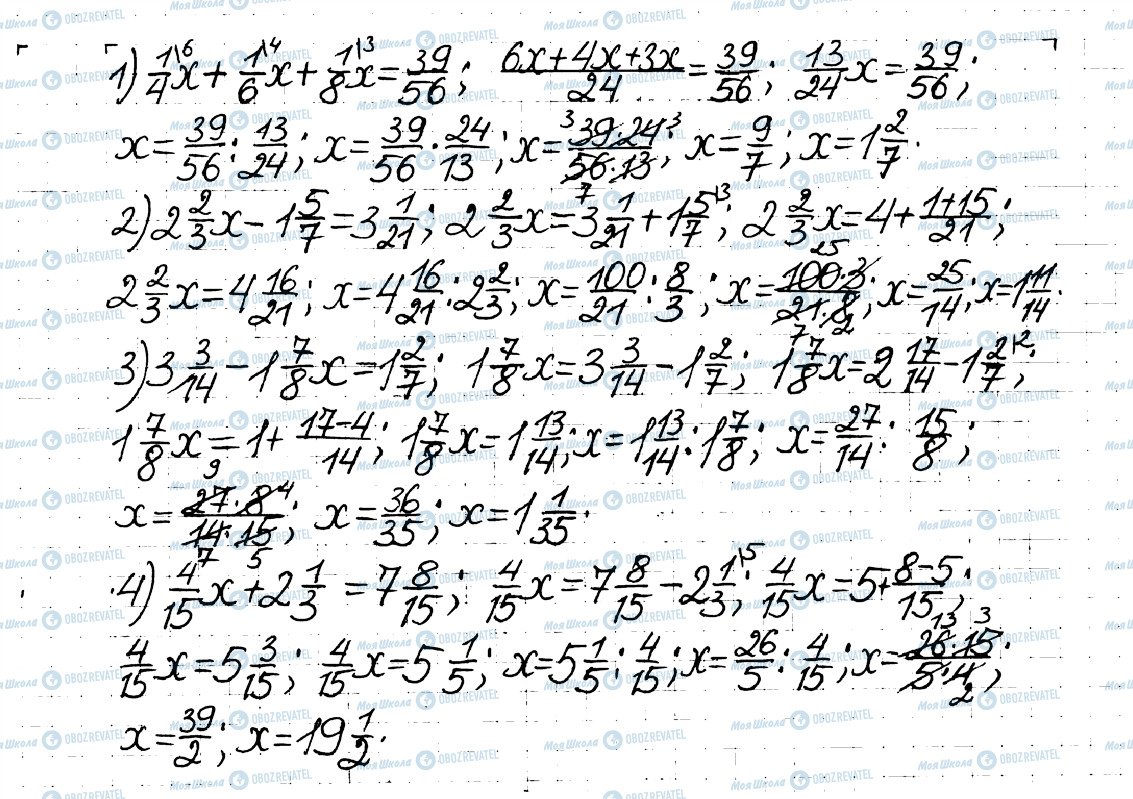 1) 1/4|6 x + 1/6|4 x + 1/8|3 x = 39/56; (6x+4x+3x)/24 = 39/56; 13/24 x = 39/56;
x = 39/56 : 13/24; x = 39/56 · 24/13; x = 3 (39·24)/(56·13) 3 7; x = 9/7; x = 1 2/7.
2) 2 2/3 x − 1 5/7 = 3 1/21; 2 2/3 x = 3 1/21 + 1 5/7|3; 2 2/3 x = 4 + (1+15)/21;
2 2/3 x = 4 16/21; x = 4 16/21 : 2 2/3; x = 100/21 : 8/3; x = 25 (100·3)/(21·8) 7 2; x = 25/14; x = 1 11/14.
3) 3 3/14 − 1 7/8 x = 1 2/7; 1 7/8 x = 3 3/14 − 1 2/7; 1 7/8 x = 2 17/14 − 1 2/7|2;
1 7/8 x = 1 + (17−4)/14; 1 7/8 x = 1 13/14; x = 1 13/14 : 1 7/8; x = 27/14 : 15/8;
x = 9 (27·8)/(14·15) 4 7 5; x = 36/35; x = 1 1/35.
4) 4/15 x + 2 1/3 = 7 8/15; 4/15 x = 7 8/15 − 2 1/3|5; 4/15 x = 5 + (8−5)/15;
4/15 x = 5 3/15; 4/15 x = 5 1/5; x = 5 1/5 : 4/15; x = 26/5 : 4/15; x = 13 (26·15)/(5·4) 3 2;
x = 39/2; x = 19 1/2.
МояШкола OBOZREVATEL